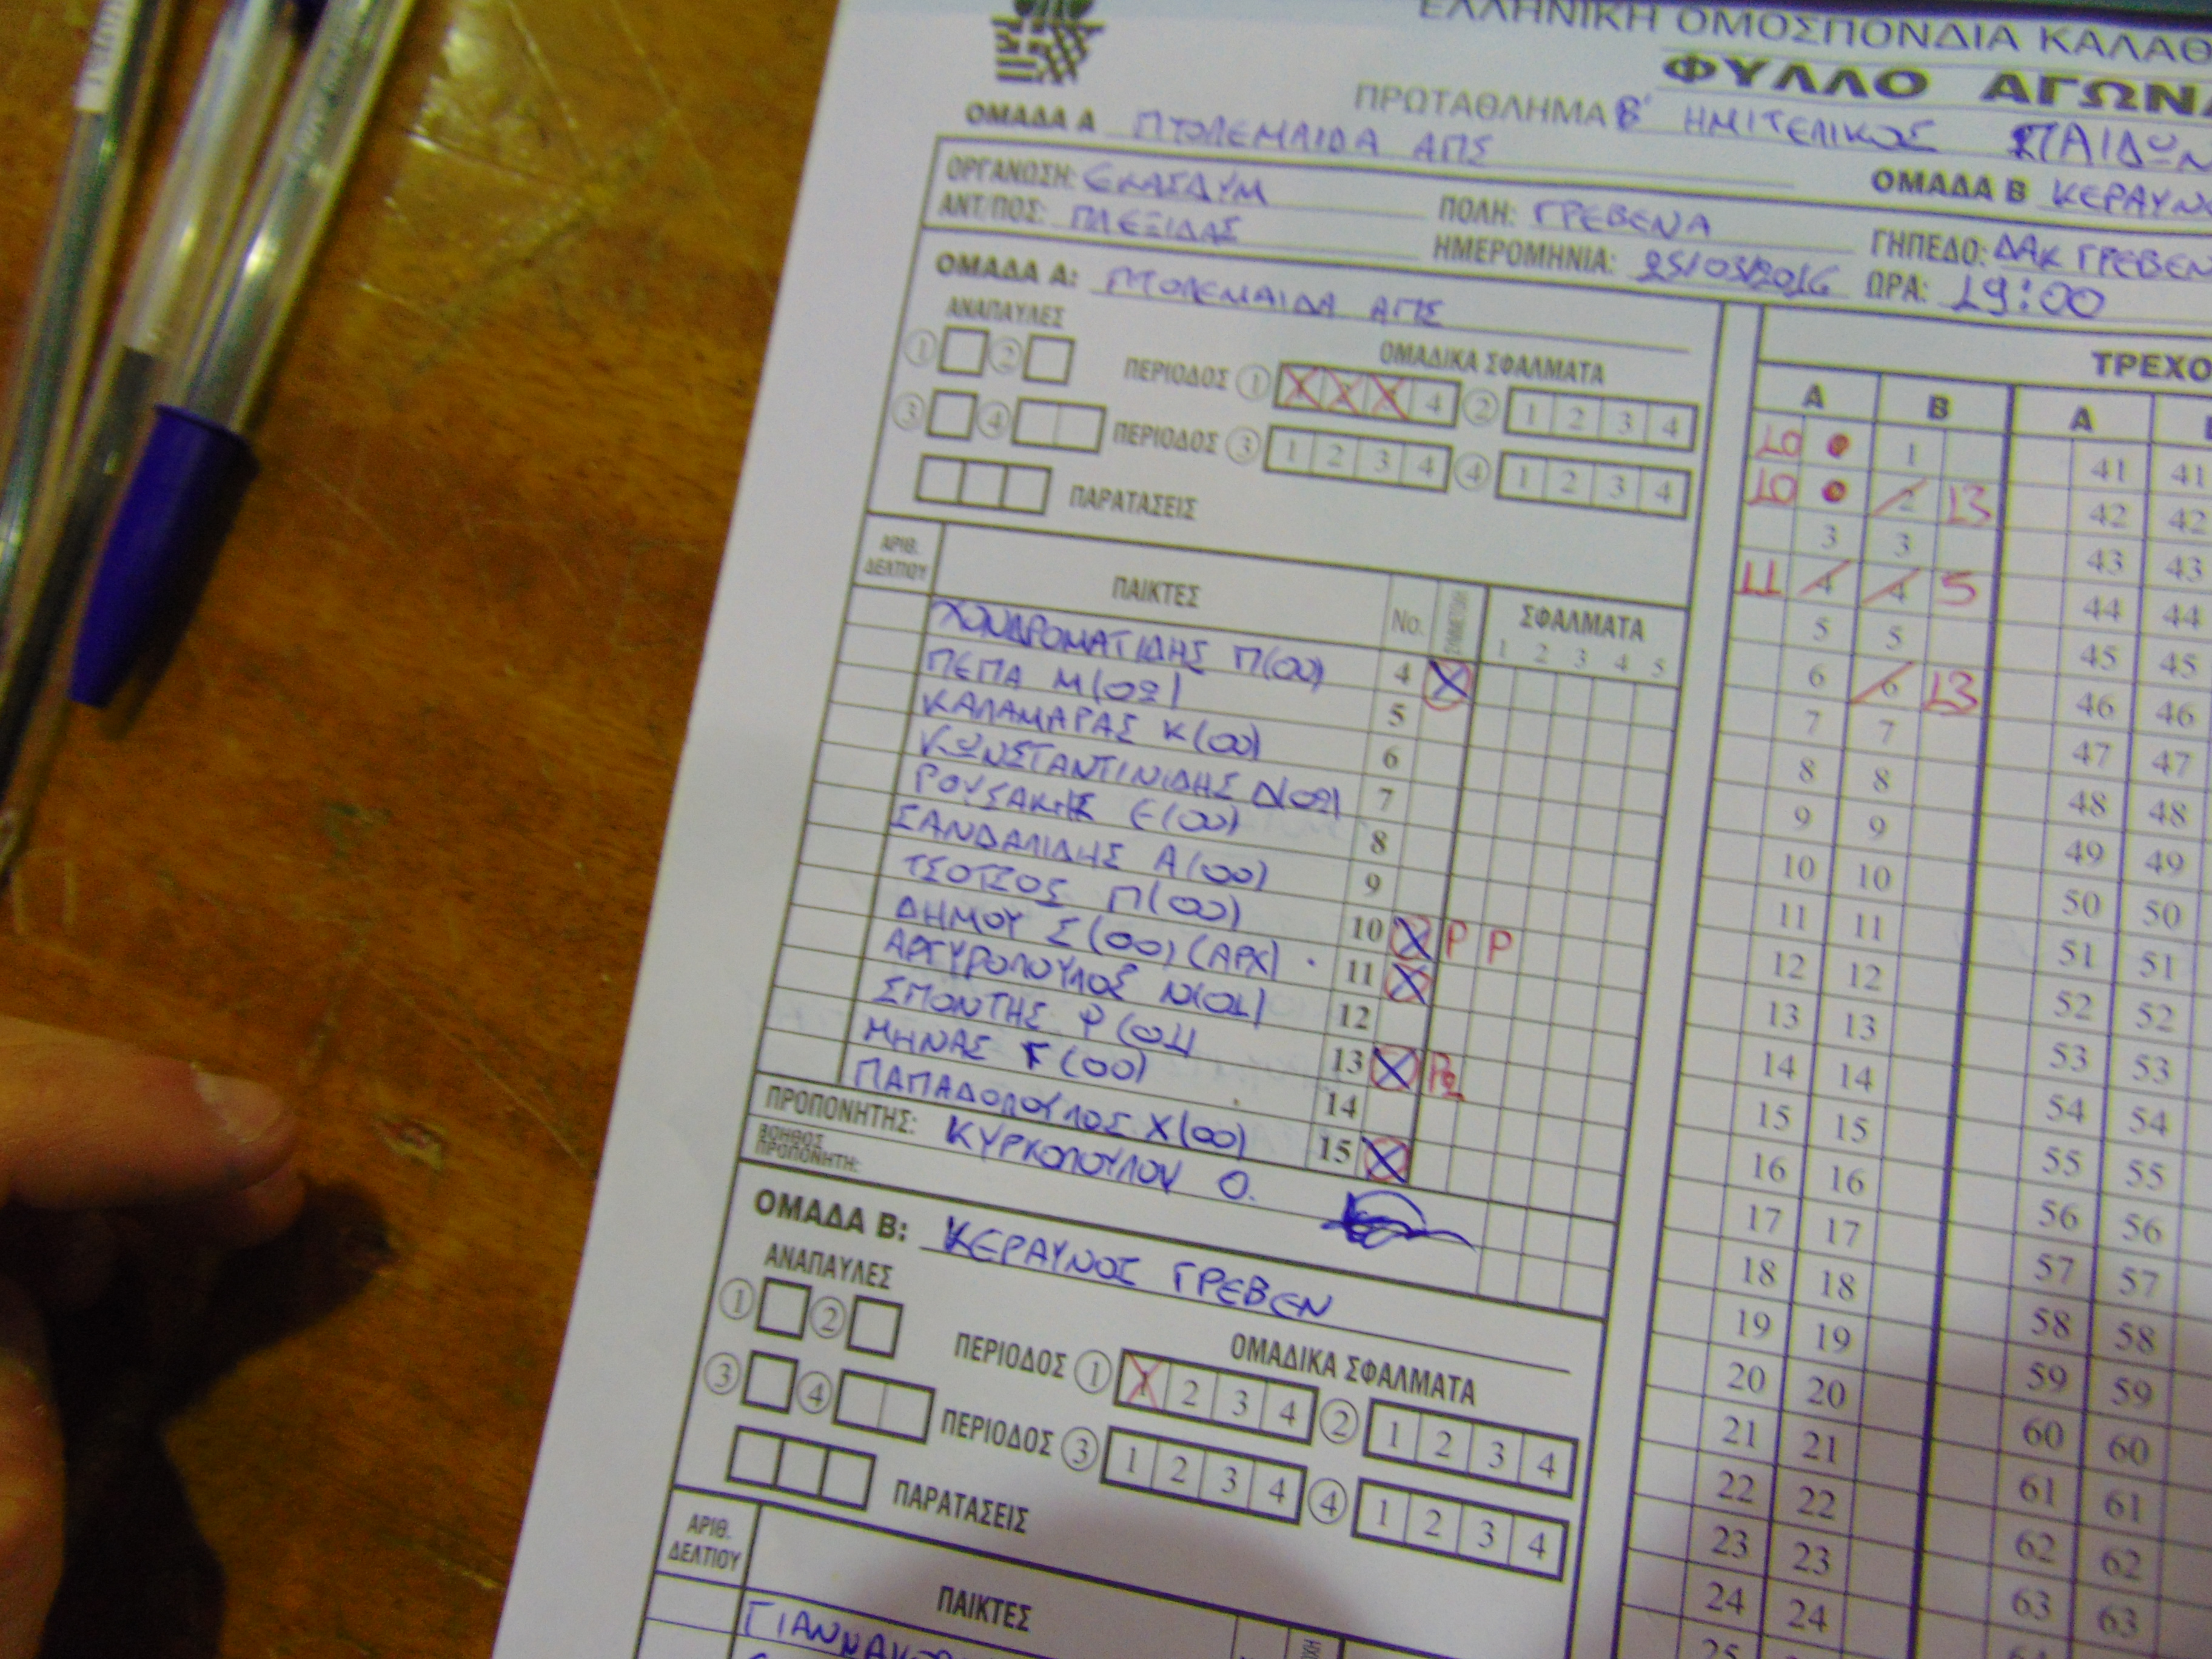 ΕΛΛΗΝΙΚΗ ΟΜΟΣΠΟΝΔΙΑ ΚΑΛΑΘ
ΦΥΛΛΟ ΑΓΩΝ
ΠΡΩΤΑΘΛΗΜΑ Β' ΗΜΙΤΕΛΙΚΟΣ ΠΑΙΔΩΝ
ΟΜΑΔΑ Α ΠΤΟΛΕΜΑΙΔΑ ΑΠΣ
ΟΜΑΔΑ Β ΚΕΡΑΥΝΟ
ΟΡΓΑΝΩΣΗ: ΕΚΑΣΔΥΜ ΠΟΛΗ: ΓΡΕΒΕΝΑ ΓΗΠΕΔΟ: ΔΑΚ ΓΡΕΒΕΝ
ΑΝΤ/ΠΟΣ: ΠΛΕΞΙΔΑΣ ΗΜΕΡΟΜΗΝΙΑ: 25/03/2016 ΩΡΑ: 19:00
ΟΜΑΔΑ Α: ΠΤΟΛΕΜΑΙΔΑ ΑΠΣ
ΑΝΑΠΑΥΛΕΣ ΟΜΑΔΙΚΑ ΣΦΑΛΜΑΤΑ
1 2 ΠΕΡΙΟΔΟΣ 1 X X X 4 2 1 2 3 4
3 4 ΠΕΡΙΟΔΟΣ 3 1 2 3 4 4 1 2 3 4
ΠΑΡΑΤΑΣΕΙΣ
ΑΡΙΘ. ΔΕΛΤΙΟΥ ΠΑΙΚΤΕΣ Νο. ΣΦΑΛΜΑΤΑ
1 2 3 4 5
ΧΟΝΔΡΟΜΑΤΙΔΗΣ Π(00) 4 X
ΠΕΠΑ Μ(02) 5
ΚΑΛΑΜΑΡΑΣ Κ(00) 6
ΚΩΝΣΤΑΝΤΙΝΙΔΗΣ Δ(02) 7
ΡΟΥΣΑΚΗΣ Ε(00) 8
ΣΑΝΔΑΛΙΔΗΣ Α(00) 9
ΤΣΟΤΣΟΣ Π(00) 10 X P P
ΔΗΜΟΥ Σ(00) (ΑΡΧ) 11 X
ΑΡΓΥΡΟΠΟΥΛΟΣ Ν(01) 12
ΣΠΟΝΤΗΣ Φ(01) 13 X P2
ΜΗΝΑΣ Γ(00) 14
ΠΑΠΑΔΟΠΟΥΛΟΣ Χ(00) 15 X
ΠΡΟΠΟΝΗΤΗΣ: ΚΥΡΚΟΠΟΥΛΟΥ Ο.
ΒΟΗΘΟΣ ΠΡΟΠΟΝΗΤΗ:
ΟΜΑΔΑ Β: ΚΕΡΑΥΝΟΣ ΓΡΕΒΕΝ
ΑΝΑΠΑΥΛΕΣ ΟΜΑΔΙΚΑ ΣΦΑΛΜΑΤΑ
1 2 ΠΕΡΙΟΔΟΣ 1 1 2 3 4 2 1 2 3 4
3 4 ΠΕΡΙΟΔΟΣ 3 1 2 3 4 4 1 2 3 4
ΠΑΡΑΤΑΣΕΙΣ
ΑΡΙΘ. ΔΕΛΤΙΟΥ ΠΑΙΚΤΕΣ
ΓΙΑΝΝΑΚΟ
ΤΡΕΧΟ
Α Β Α
10 1 41 41
10 2 13 42 42
3 3 43 43
11 4 4 5 44 44
5 5 45 45
6 6 13 46 46
7 7 47 47
8 8 48 48
9 9 49 49
10 10 50 50
11 11 51 51
12 12 52 52
13 13 53 53
14 14 54 54
15 15 55 55
16 16 56 56
17 17 57 57
18 18 58 58
19 19 59 59
20 20 60 60
21 21 61 61
22 22 62 62
23 23 63 63
24 24
25